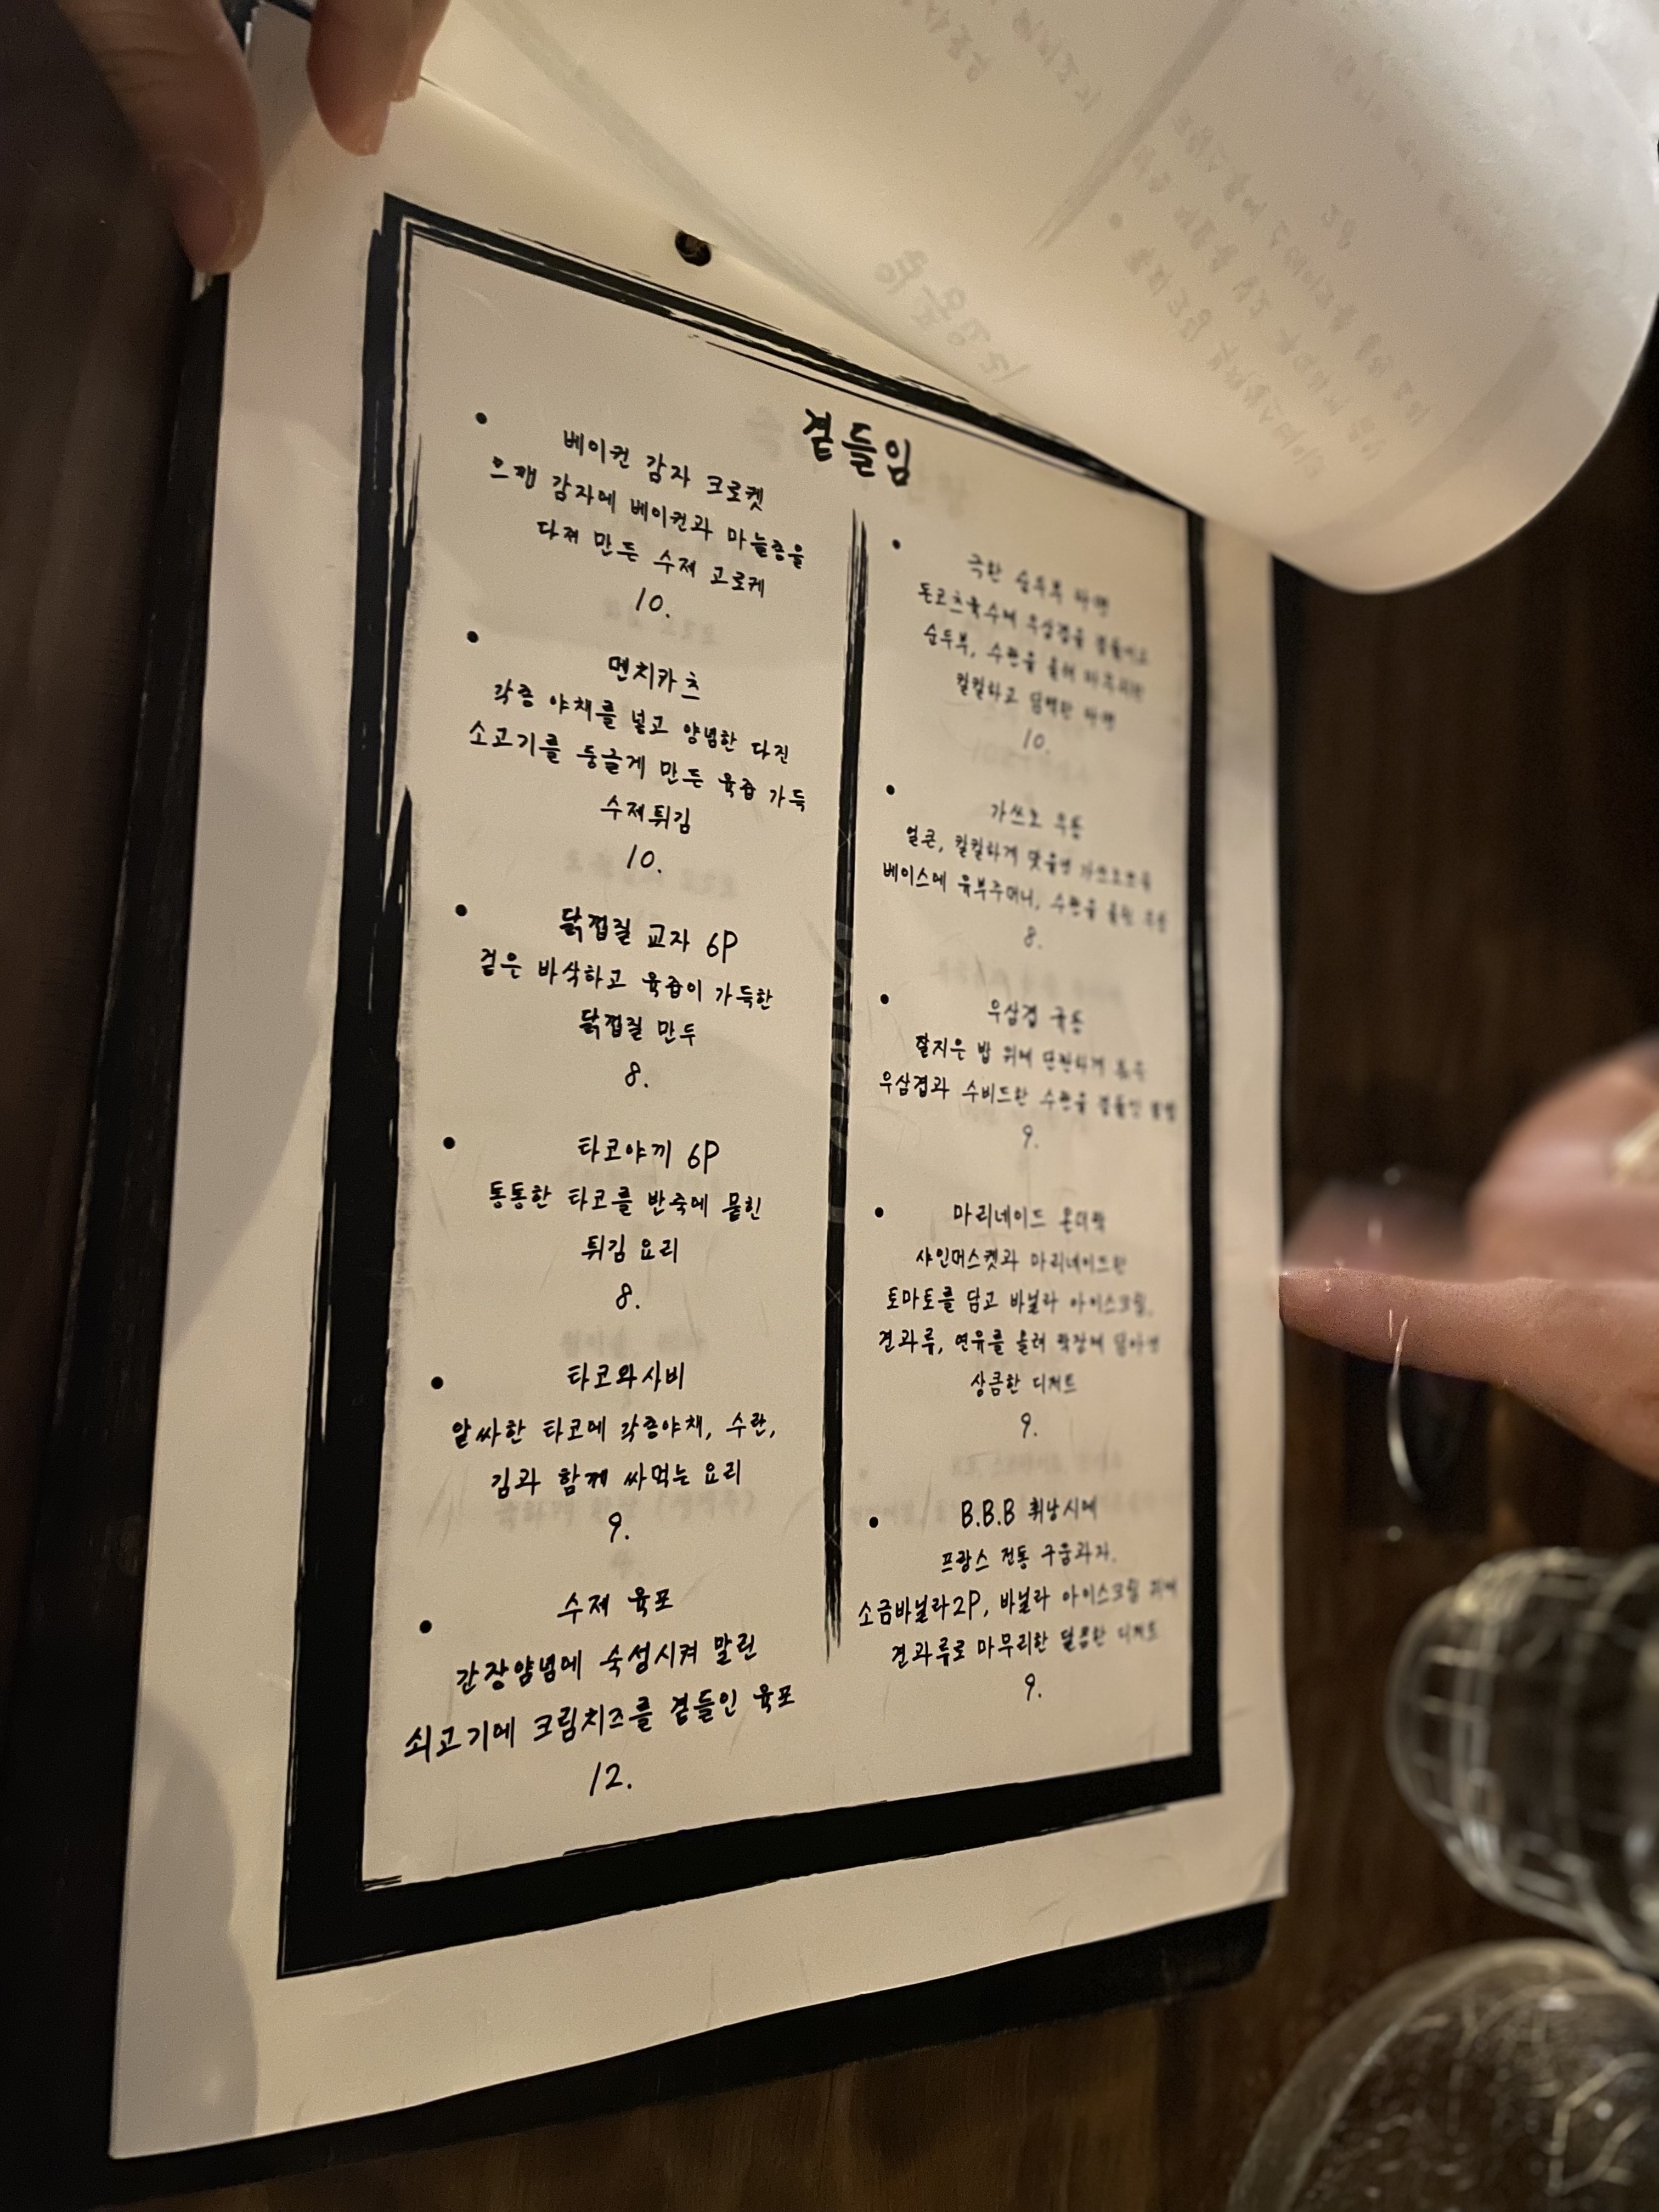 곁들임
베이컨 감자 크로켓
으깬 감자에 베이컨과 마늘쫑을
다져 만든 수제 고로케
10.
멘치카츠
각종 야채를 넣고 양념한 다진
소고기를 둥글게 만든 육즙 가득
수제튀김
10.
닭껍질 교자 6P
겉은 바삭하고 육즙이 가득한
닭껍질 만두
8.
타코야끼 6P
통통한 타코를 반죽에 묻힌
튀김 요리
8.
타코와사비
알싸한 타코에 각종야채, 수란,
김과 함께 싸먹는 요리
9.
수제 육포
간장양념에 숙성시켜 말린
쇠고기에 크림치즈를 곁들인 육포
12.
순두부 라멘
돈코츠육수에 우삼겹을 곁들이고
순두부, 수란을 올려 마무리한
칼칼하고 담백한 라멘
10.
가쓰오 우동
얼큰, 칼칼하게 맛을낸
베이스에 유부주머니, 수란을 올린 우동
8.
우삼겹 규동
잘지은 밥 위에 단짠하게
우삼겹과 수비드한 수란을 곁들인 덮밥
9.
마리네이드 온더락
샤인머스켓과 마리네이드한
토마토를 담고 바닐라 아이스크림,
견과류, 연유를 올려 락잔에 담아낸
상큼한 디저트
9.
B.B.B 휘낭시에
프랑스 전통 구움과자.
소금바닐라2P, 바닐라 아이스크림 위에
견과류로 마무리한 달콤한 디저트
9.